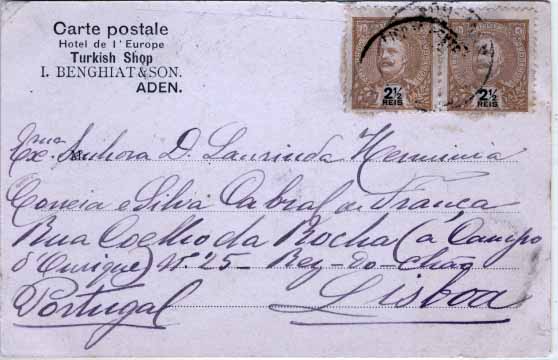 Carte postale
Hotel de l'Europe
Turkish Shop
I. BENGHIAT & SON.
ADEN.
2½
REIS
2½
REIS
Exma. Senhora D. Laurinda Herminia
Correia e Silva Cabral de França
Rua Coelho da Rocha (á Campo
d'Ourique) Nº 25 - Rez-do-Chão
Portugal Lisboa